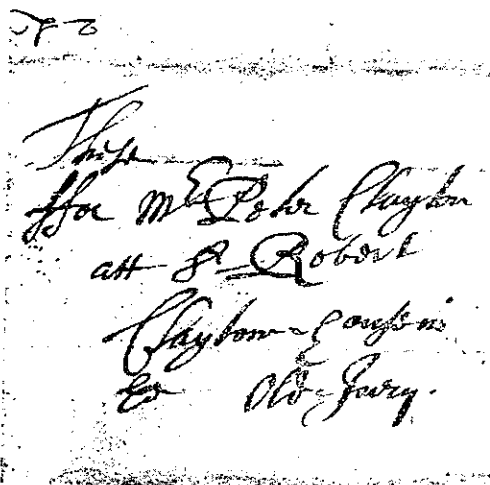 These
ffor Mr Peter Clayton
att Sr Robert
Clayton=housse in
Old=Jury.